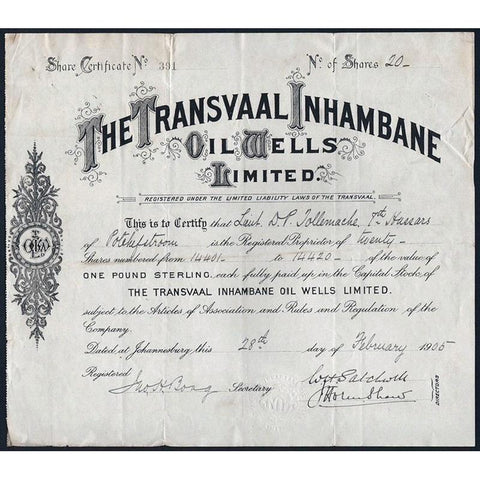 Share Certificate No 391 No. of Shares 20-
THE TRANSVAAL INHAMBANE
OIL WELLS
LIMITED.
REGISTERED UNDER THE LIMITED LIABILITY LAWS OF THE TRANSVAAL.
This is to Certify that Lieut. D. P. Tollemache, 7th Hussars
of Potchefstroom is the Registered Proprietor of twenty-
Shares numbered from 14401- to 14420- of the value of
ONE POUND STERLING, each fully paid up in the Capital Stock of
THE TRANSVAAL INHAMBANE OIL WELLS LIMITED.
subject to the Articles of Association and Rules and Regulation of the
Company.
Dated at Johannesburg, this 28th day of February 1905
Registered
Secretary
DIRECTORS